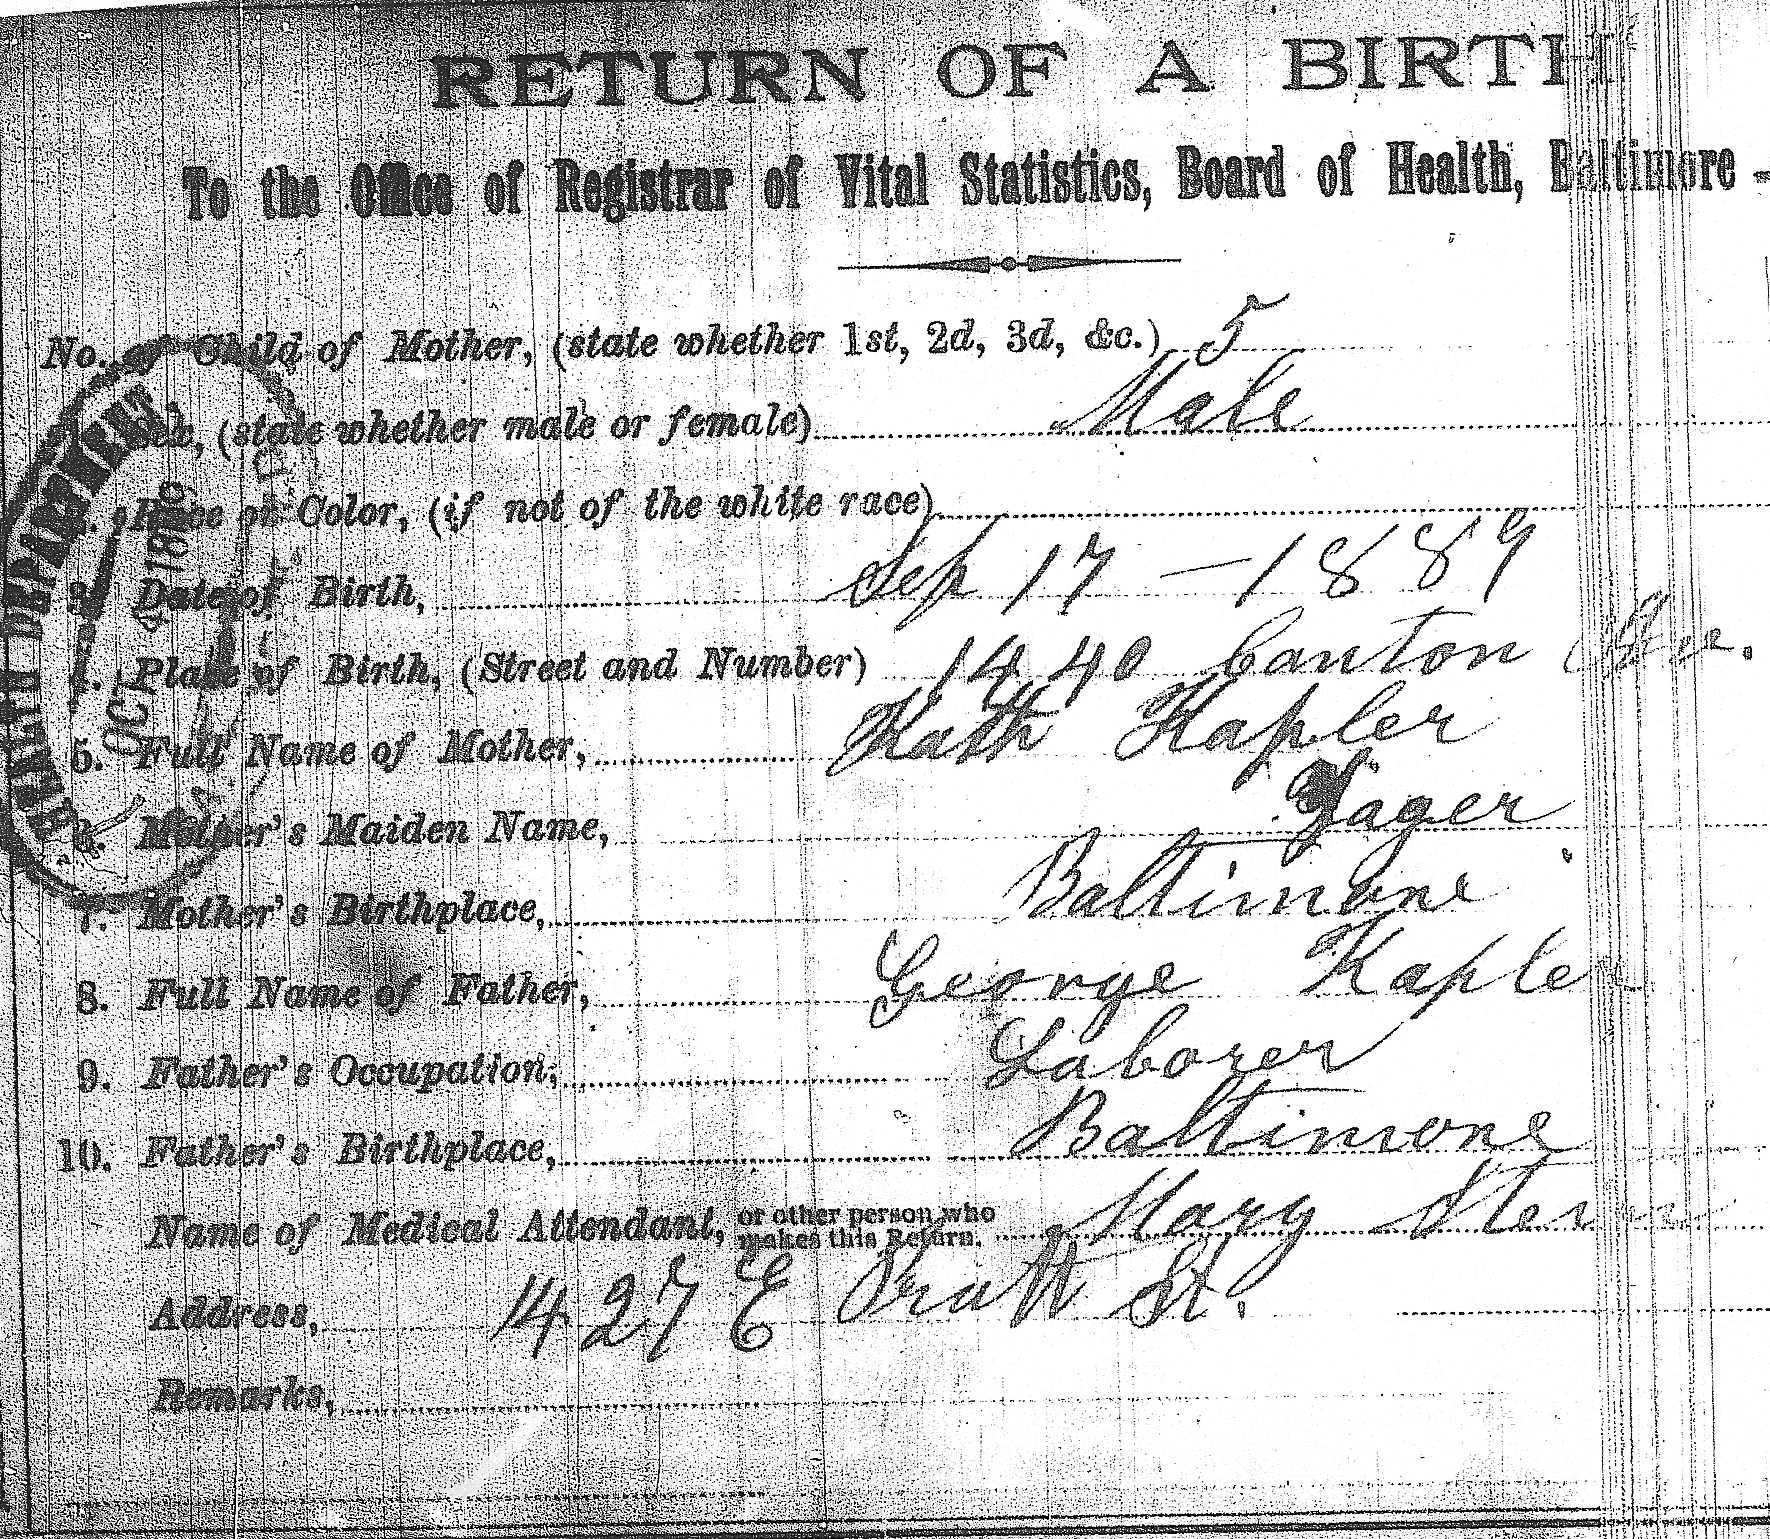 RETURN OF A BIRTH
To the Office of Registrar of Vital Statistics, Board of Health, Baltimore
No. of Child of Mother, (state whether 1st, 2d, 3d, &c.) 5
Sex, (state whether male or female) Male
Race or Color, (if not of the white race)
3. Date of Birth, Sep 17 – 1889
4. Place of Birth, (Street and Number) 1440 Canton Ave.
5. Full Name of Mother, Kath Kapler
6. Mother's Maiden Name, Yager
7. Mother's Birthplace, Baltimore
8. Full Name of Father, George Kapler
9. Father's Occupation, Laborer
10. Father's Birthplace, Baltimore
Name of Medical Attendant, or other person who makes this Return. Mary Stern
Address, 1427 E Pratt St.
Remarks,
HEALTH DEPARTMENT
OCT 4 18